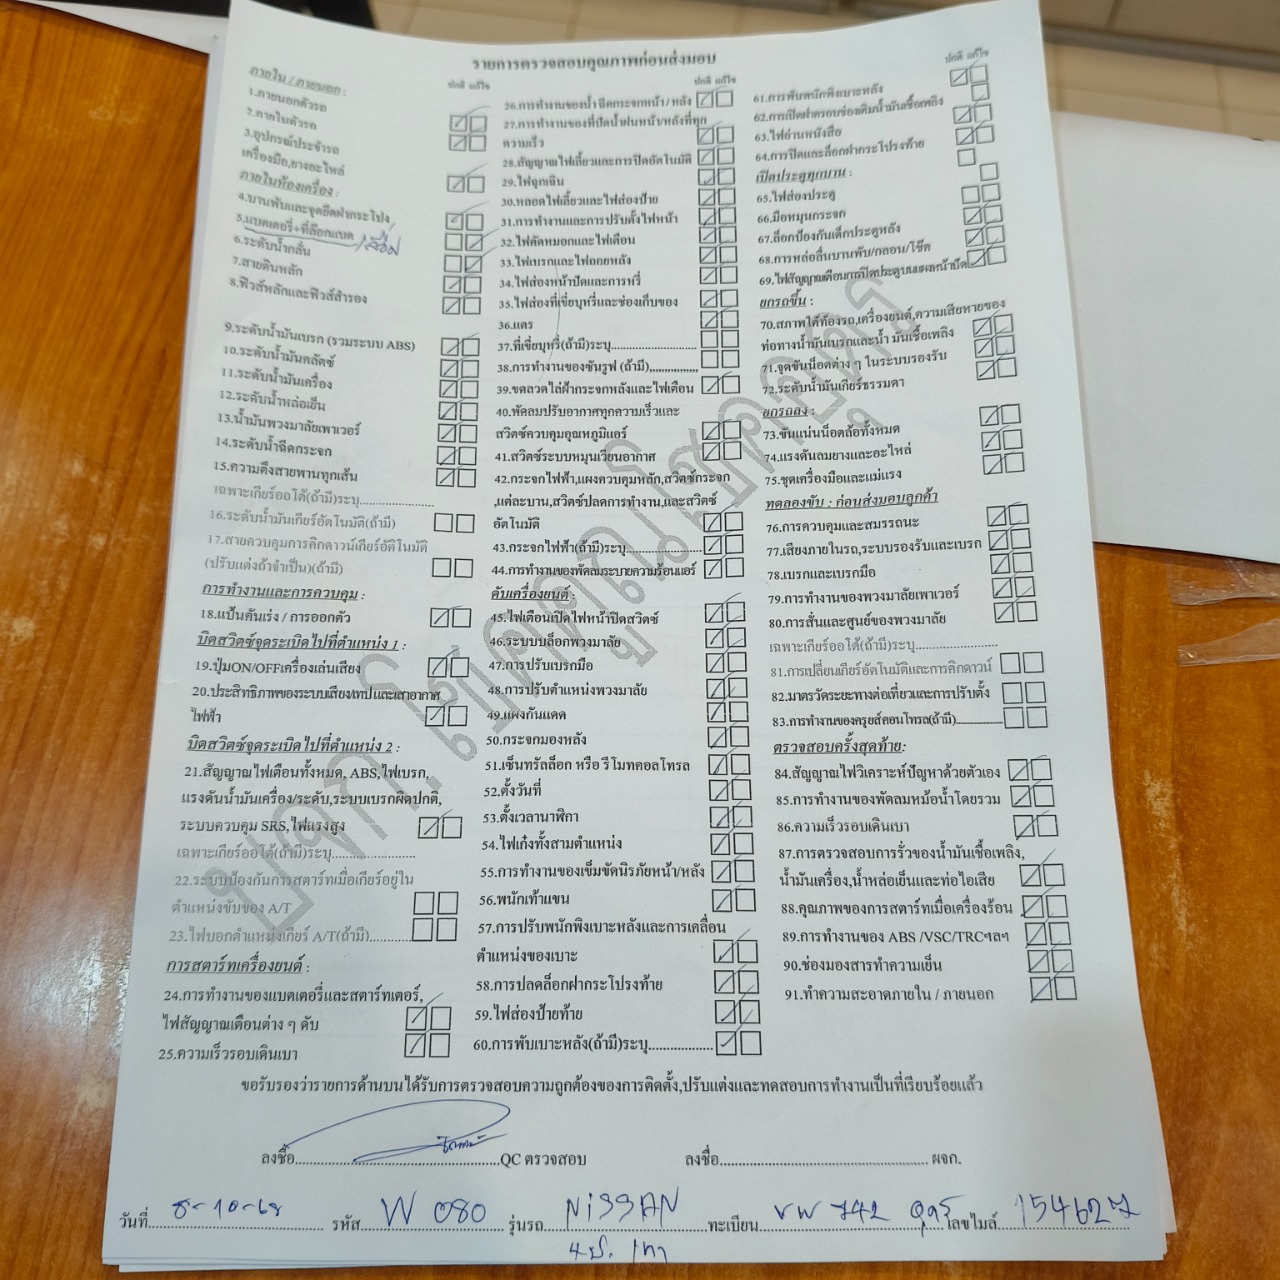 รายการตรวจสอบคุณภาพก่อนส่งมอบ
ภายใน / ภายนอก :
ปกติ แก้ไข
1.ภายนอกตัวรถ
2.ภายในตัวรถ
3.อุปกรณ์ประจำรถ
เครื่องมือ,ยางอะไหล่
ภายในห้องเครื่อง :
4.บานพับและจุดยึดฝากระโปง
5.แบตเตอรี่+ที่ล๊อกแบต
6.ระดับน้ำกลั่น
7.สายดินหลัก
8.ฟิวส์หลักและฟิวส์สำรอง
9.ระดับน้ำมันเบรก (รวมระบบ ABS)
10.ระดับน้ำมันคลัตซ์
11.ระดับน้ำมันเครื่อง
12.ระดับน้ำหล่อเย็น
13.น้ำมันพวงมาลัยเพาเวอร์
14.ระดับน้ำฉีดกระจก
15.ความตึงสายพานทุกเส้น
เฉพาะเกียร์ออโต้(ถ้ามี)ระบุ................
16.ระดับน้ำมันเกียร์อัตโนมัติ(ถ้ามี)
17.สายควบคุมการคิกดาวน์เกียร์อัติโนมัติ
(ปรับแต่งถ้าจำเป็น)(ถ้ามี)
การทำงานและการควบคุม :
18.แป้นคันเร่ง / การออกตัว
บิดสวิตซ์จุดระเบิดไปที่ตำแหน่ง 1 :
19.ปุ่มON/OFFเครื่องเล่นเสียง
20.ประสิทธิภาพของระบบเสียงเทปและเสาอากาศ
ไฟฟ้า
บิดสวิตซ์จุดระเบิดไปที่ตำแหน่ง 2 :
21.สัญญาณไฟเตือนทั้งหมด, ABS,ไฟเบรก,
แรงดันน้ำมันเครื่อง/ระดับ,ระบบเบรกผิดปกติ,
ระบบควบคุม SRS,ไฟแรงสูง
เฉพาะเกียร์ออโต้(ถ้ามี)ระบุ................
22.ระบบป้องกันการสตาร์ทเมื่อเกียร์อยู่ใน
ตำแหน่งขับของ A/T
23.ไฟบอกตำแหน่งเกียร์ A/T(ถ้ามี)...........
การสตาร์ทเครื่องยนต์ :
24.การทำงานของแบตเตอรี่และสตาร์ทเตอร์,
ไฟสัญญาณเตือนต่าง ๆ ดับ
25.ความเร็วรอบเดินเบา
ปกติ แก้ไข
26.การทำงานของน้ำฉีดกระจกหน้า/หลัง
27.การทำงานของที่ปัดน้ำฝนหน้า/หลังที่ทุก
ความเร็ว
28.สัญญาณไฟเลี้ยวและการปิดอัตโนมัติ
29.ไฟฉุกเฉิน
30.หลอดไฟเลี้ยวและไฟส่องป้าย
31.การทำงานและการปรับตั้งไฟหน้า
32.ไฟตัดหมอกและไฟเตือน
33.ไฟเบรกและไฟถอยหลัง
34.ไฟส่องหน้าปัดและการหรี่
35.ไฟส่องที่เขี่ยบุหรี่และช่องเก็บของ
36.แตร
37.ที่เขี่ยบุหรี่(ถ้ามี)ระบุ................
38.การทำงานของซันรูฟ (ถ้ามี)..............
39.ขดลวดไล่ฝ้ากระจกหลังและไฟเตือน
40.พัดลมปรับอากาศทุกความเร็วและ
สวิตซ์ควบคุมอุณหภูมิแอร์
41.สวิตซ์ระบบหมุนเวียนอากาศ
42.กระจกไฟฟ้า,แผงควบคุมหลัก,สวิตซ์กระจก
,แต่ละบาน,สวิตซ์ปลดการทำงาน,และสวิตซ์
อัตโนมัติ
43.กระจกไฟฟ้า(ถ้ามี)ระบุ................
44.การทำงานของพัดลมระบายความร้อนแอร์
ดับเครื่องยนต์ :
45.ไฟเตือนเปิดไฟหน้าปิดสวิตซ์
46.ระบบบล็อกพวงมาลัย
47.การปรับเบรกมือ
48.การปรับตำแหน่งพวงมาลัย
49.แผงกันแดด
50.กระจกมองหลัง
51.เซ็นทรัลล็อก หรือ รีโมทคอลโทรล
52.ตั้งวันที่
53.ตั้งเวลานาฬิกา
54.ไฟเก๋งทั้งสามตำแหน่ง
55.การทำงานของเข็มขัดนิรภัยหน้า/หลัง
56.พนักเท้าแขน
57.การปรับพนักพิงเบาะหลังและการเคลื่อน
ตำแหน่งของเบาะ
58.การปลดล็อกฝากระโปรงท้าย
59.ไฟส่องป้ายท้าย
60.การพับเบาะหลัง(ถ้ามี)ระบุ................
ปกติ แก้ไข
61.การพับพนักพิงเบาะหลัง
62.การเปิดฝาครอบช่องเติมน้ำมันเชื้อเพลิง
63.ไฟอ่านหนังสือ
64.การปิดและล็อกฝากระโปรงท้าย
เปิดประตูทุกบาน :
65.ไฟส่องประตู
66.มือหมุนกระจก
67.ล็อกป้องกันเด็กประตูหลัง
68.การหล่อลื่นบานพับ/กลอน/โช๊ค
69.ไฟสัญญาณเตือนการเปิดประตูบนแผงหน้าปัด
ยกรถขึ้น :
70.สภาพใต้ท้องรถ,เครื่องยนต์,ความเสียหายของ
ท่อทางน้ำมันเบรกและน้ำ มันเชื้อเพลิง
71.จุดขันน็อตต่าง ๆ ในระบบรองรับ
72.ระดับน้ำมันเกียร์ธรรมดา
ยกรถลง :
73.ขันแน่นน็อตล้อทั้งหมด
74.แรงดันลมยางและอะไหล่
75.ชุดเครื่องมือและแม่แรง
ทดลองขับ : ก่อนส่งมอบลูกค้า
76.การควบคุมและสมรรถนะ
77.เสียงภายในรถ,ระบบรองรับและเบรก
78.เบรกและเบรกมือ
79.การทำงานของพวงมาลัยเพาเวอร์
80.การสั่นและศูนย์ของพวงมาลัย
เฉพาะเกียร์ออโต้(ถ้ามี)ระบุ................
81.การเปลี่ยนเกียร์อัตโนมัติและการคิกดาวน์
82.มาตรวัดระยะทางต่อเที่ยวและการปรับตั้ง
83.การทำงานของครุยส์คอนโทรล(ถ้ามี)............
ตรวจสอบครั้งสุดท้าย:
84.สัญญาณไฟวิเคราะห์ปัญหาด้วยตัวเอง
85.การทำงานของพัดลมหม้อน้ำโดยรวม
86.ความเร็วรอบเดินเบา
87.การตรวจสอบการรั่วของน้ำมันเชื้อเพลิง,
น้ำมันเครื่อง,น้ำหล่อเย็นและท่อไอเสีย
88.คุณภาพของการสตาร์ทเมื่อเครื่องร้อน
89.การทำงานของ ABS /VSC/TRCฯลฯ
90.ช่องมองสารทำความเย็น
91.ทำความสะอาดภายใน / ภายนอก
บจก.โชคคูณโชคอุดร
ขอรับรองว่ารายการด้านบนได้รับการตรวจสอบความถูกต้องของการติดตั้ง,ปรับแต่งและทดสอบการทำงานเป็นที่เรียบร้อยแล้ว
ลงชื่อ................QC ตรวจสอบ ลงชื่อ................ ผจก.
วันที่ 8-10-68 รหัส W 080 รุ่นรถ NISSAN ทะเบียน ขพ 742 อุดร เลขไมล์ 154627
4 ป. เทา